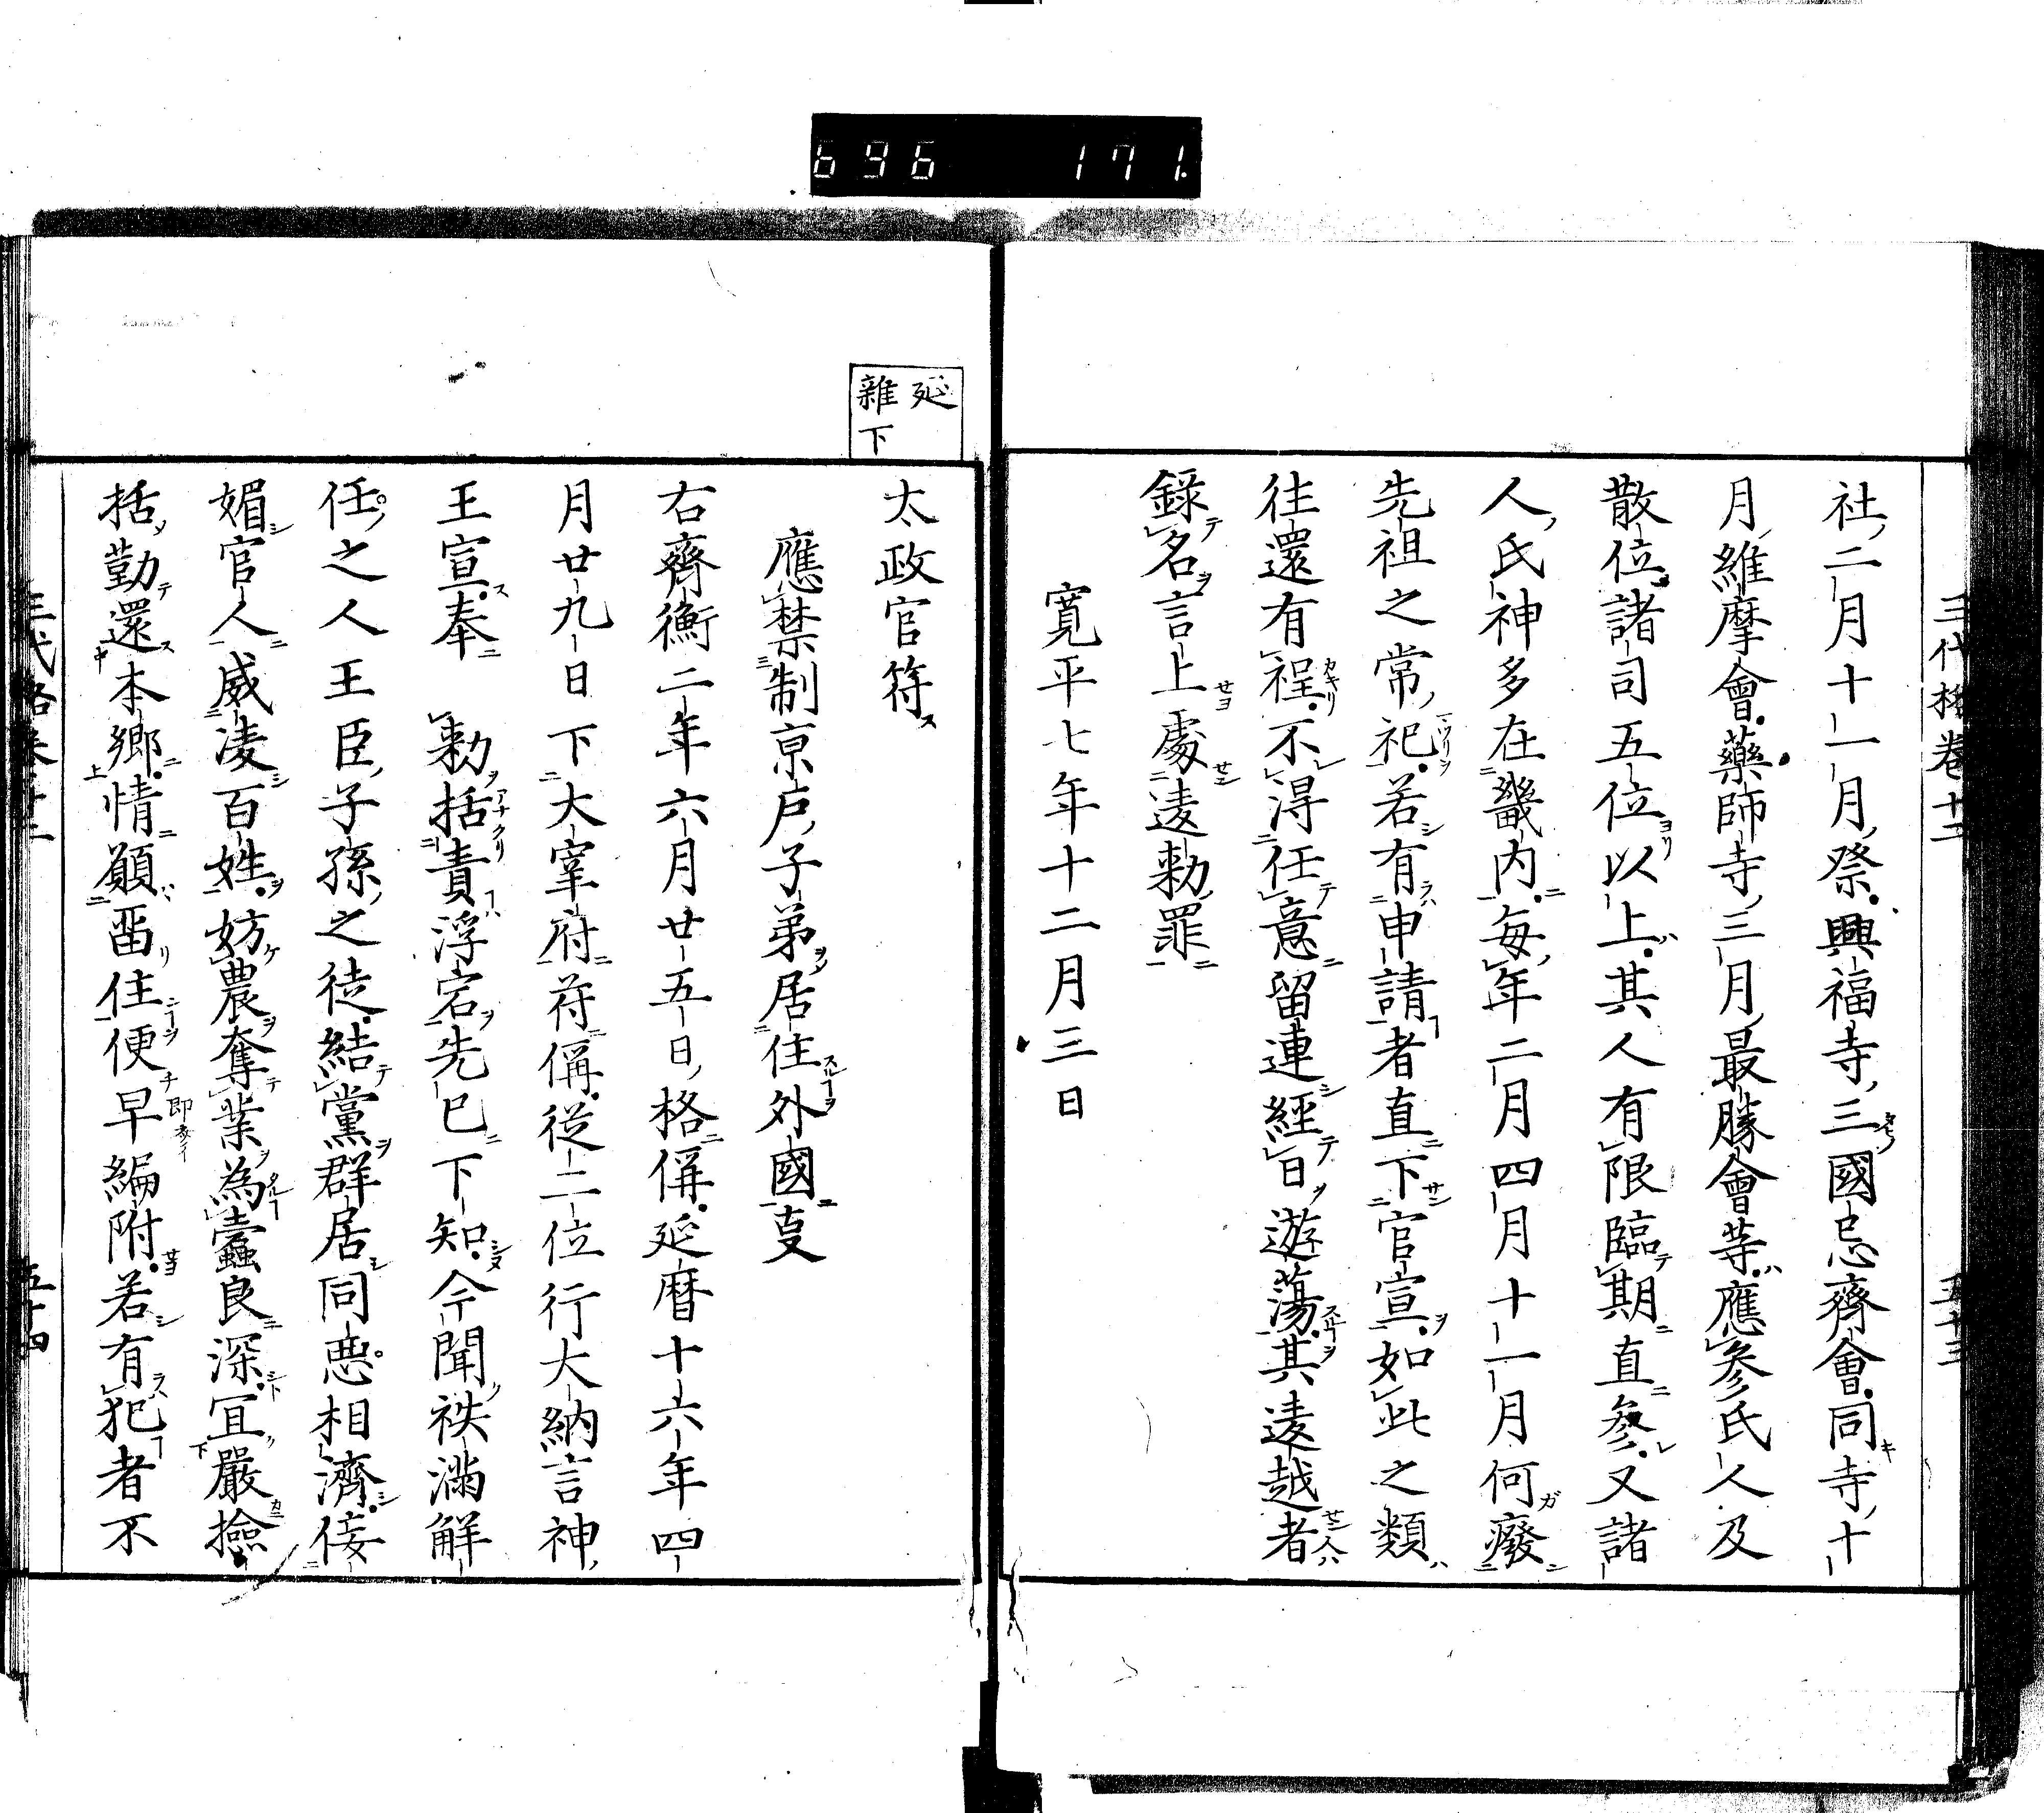 三代格卷十二
五十三
社二月十一月祭興福寺三國忌齊會同寺十
月維摩會藥師寺三月最勝會等應參氏人及
散位諸司五位以上其人有限臨期直參又諸
人氏神多在畿内每年二月四月十一月何廢
先祖之常祀若有申請者直下官宣如此之類
往還有程不得任意留連經日遊蕩其違越者
錄名言上處違勅罪
寛平七年十二月三日
延
雜下
太政官符
應禁制京戶子弟居住外國亊
右齊衡二年六月廿五日格偁延暦十六年四
月廿九日下大宰府苻偁從二位行大納言神
王宣奉　勅括責浮宕先已下知今聞秩滿解
任之人王臣子孫之徒結黨群居同惡相濟侫
媚官人威凌百姓妨農奪業為蠹良深宜嚴撿
括勤還本郷情願畱住便早編附若有犯者不
三代格卷十二
五十四